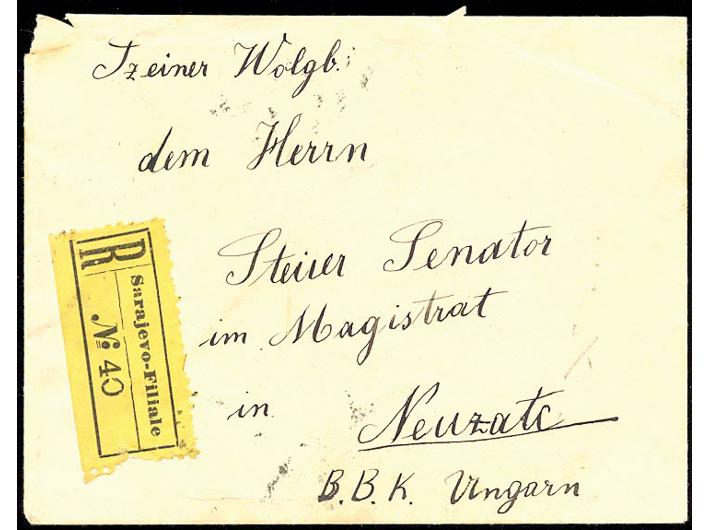 Szeiner Wolgb.
dem Herrn
Steuer Senator
im Magistrat
in Neuzatc
B.B.K. Ungarn
R
Sarajevo-Filiale
№ 40